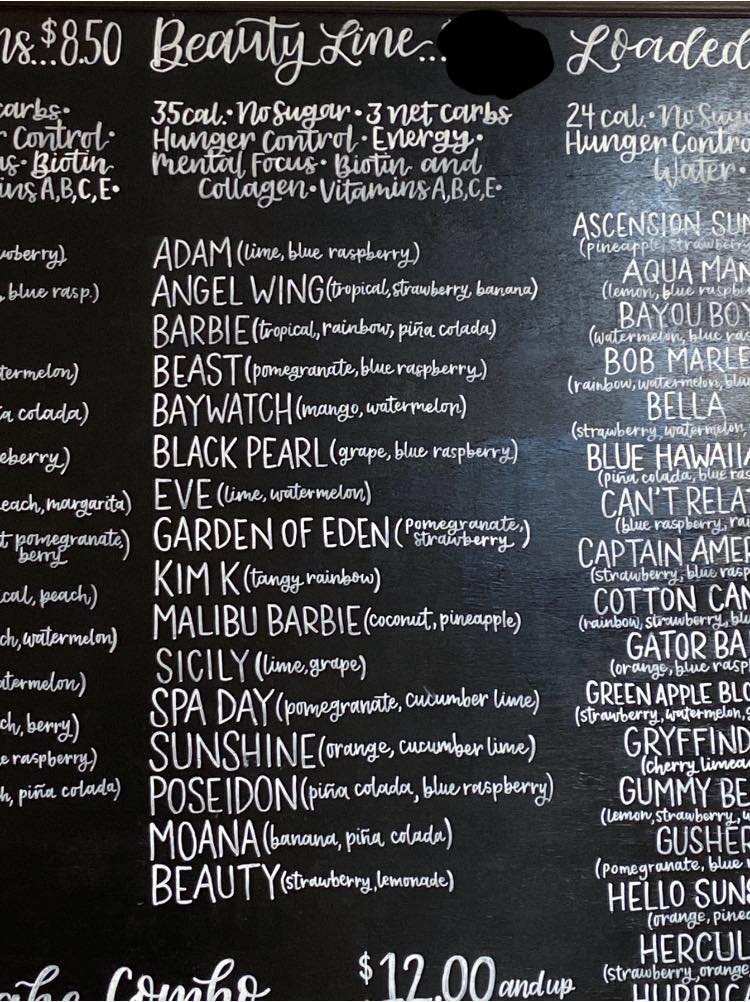 ns...$8.50
carbs·
r Control·
us· Biotin
ins A,B,C,E·
wberry)
, blue rasp.)
termelon)
a colada)
eberry)
each, margarita)
t pomegranate,
berry)
cal, peach)
ch, watermelon)
atermelon)
ch, berry)
e raspberry)
h, piña colada)
Beauty Line...
35cal.· No Sugar· 3 net carbs
Hunger Control· Energy·
Mental Focus· Biotin and
Collagen· Vitamins A,B,C,E·
ADAM (lime, blue raspberry)
ANGEL WING (tropical, strawberry, banana)
BARBIE (tropical, rainbow, piña colada)
BEAST (pomegranate, blue raspberry)
BAYWATCH (mango, watermelon)
BLACK PEARL (grape, blue raspberry)
EVE (lime, watermelon)
GARDEN OF EDEN (pomegranate,
strawberry)
KIM K (tangy rainbow)
MALIBU BARBIE (coconut, pineapple)
SICILY (lime, grape)
SPA DAY (pomegranate, cucumber lime)
SUNSHINE (orange, cucumber lime)
POSEIDON (piña colada, blue raspberry)
MOANA (banana, piña colada)
BEAUTY (strawberry, lemonade)
$12.00 and up
Combo
Loaded
24 cal.· No Sug
Hunger Contro
Water·
ASCENSION SUN
(pineapple, strawberr
AQUA MAN
(lemon, blue raspbe
BAYOU BOY
(watermelon, blue ras
BOB MARLE
(rainbow, watermelon, blu
BELLA
(strawberry, watermelon,
BLUE HAWAII
(piña colada, blue ras
CAN'T RELA
(blue raspberry, ra
CAPTAIN AMER
(strawberry, blue rasp
COTTON CAN
(rainbow, strawberry, blu
GATOR BA
(orange, blue rasp
GREEN APPLE BLO
(strawberry, watermelon, g
GRYFFIND
(cherry limea
GUMMY BE
(lemon, strawberry, w
GUSHER
(pomegranate, blue r
HELLO SUNS
(orange, pinea
HERCUL
(strawberry, orange
HURRICA